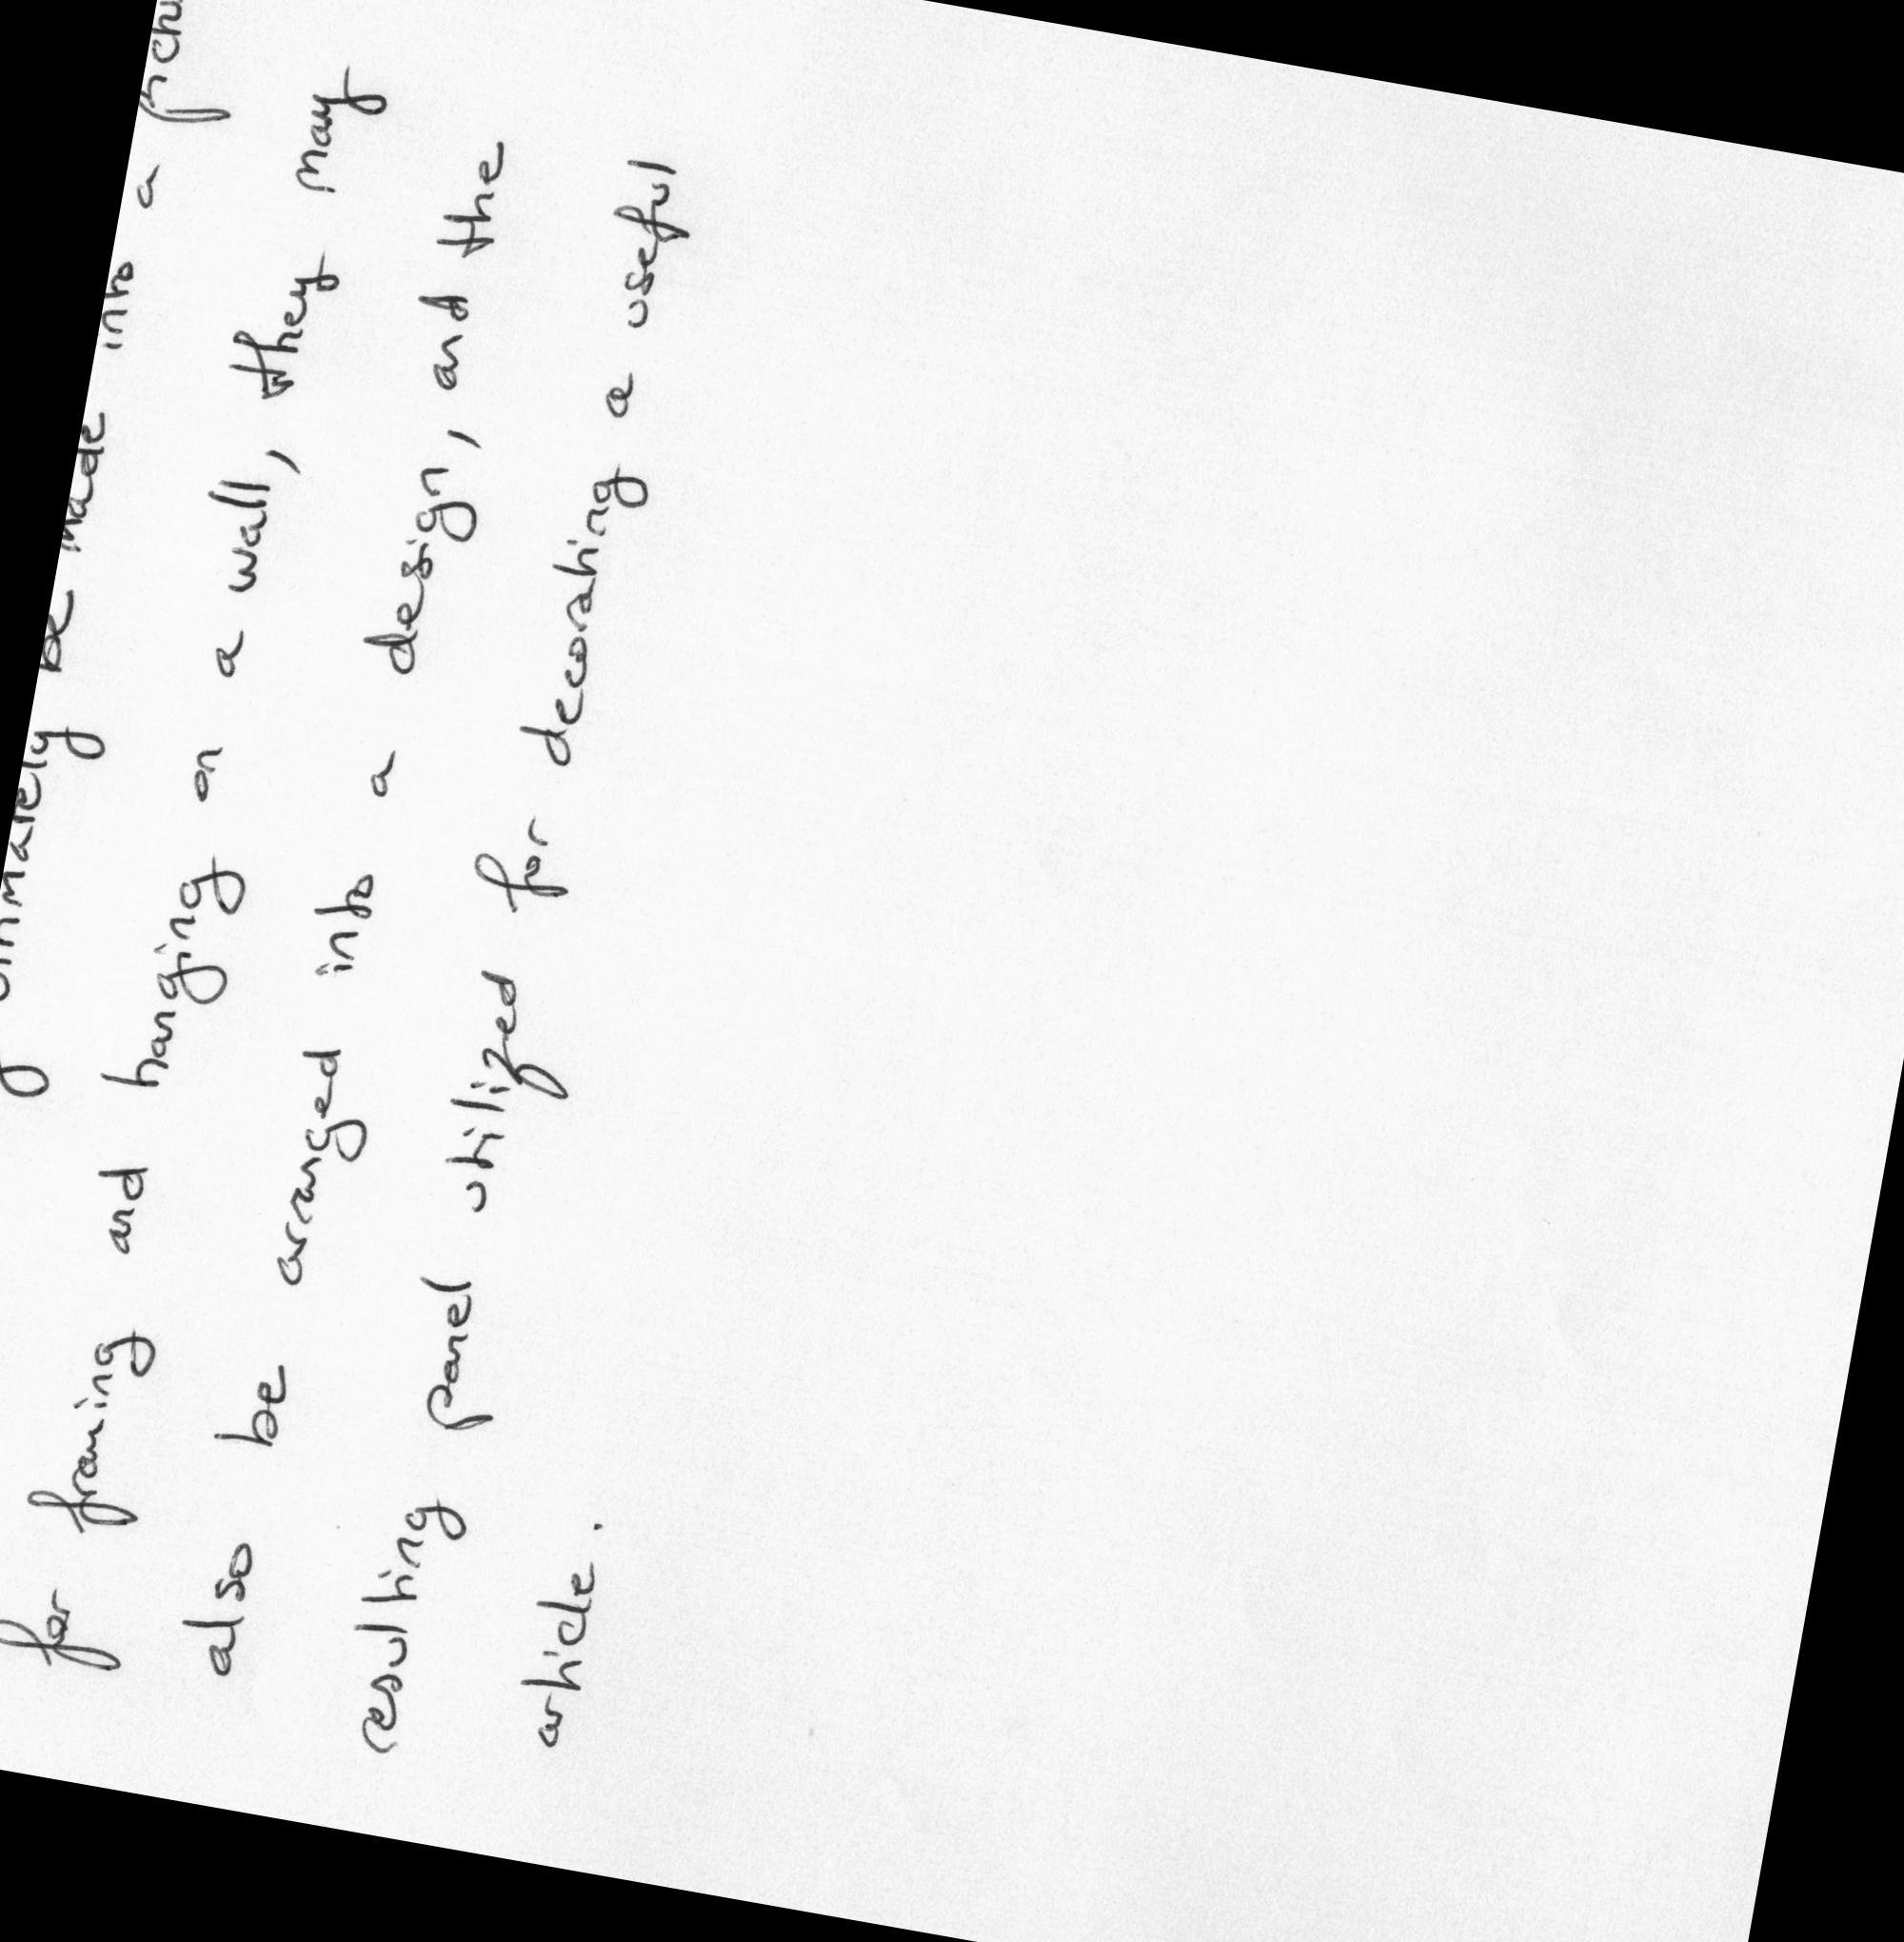 be made into a
for framing and hanging on a wall, they may
also be arranged into a design, and the
resulting panel utilized for decorating a useful
article.